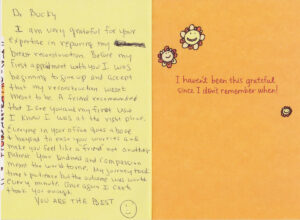 Dr Bucky
I am very grateful for your
expertise in repairing my
Breast reconstruction. Before my
first appointment with you I was
beginning to give up and accept
that my reconstruction wasn't
meant to be. A friend recommended
that I see you and my first visit
I knew I was at the right place.
Everyone in your office does a
helping to ease your worries and
make you feel like a friend not another
patient. Your kindness and compassion
mean the world to me. My journey took
time & patience but the outcome was worth
every minute. Once again I can't
thank you enough.
YOU ARE THE BEST
I haven't been this grateful
since I don't remember when!